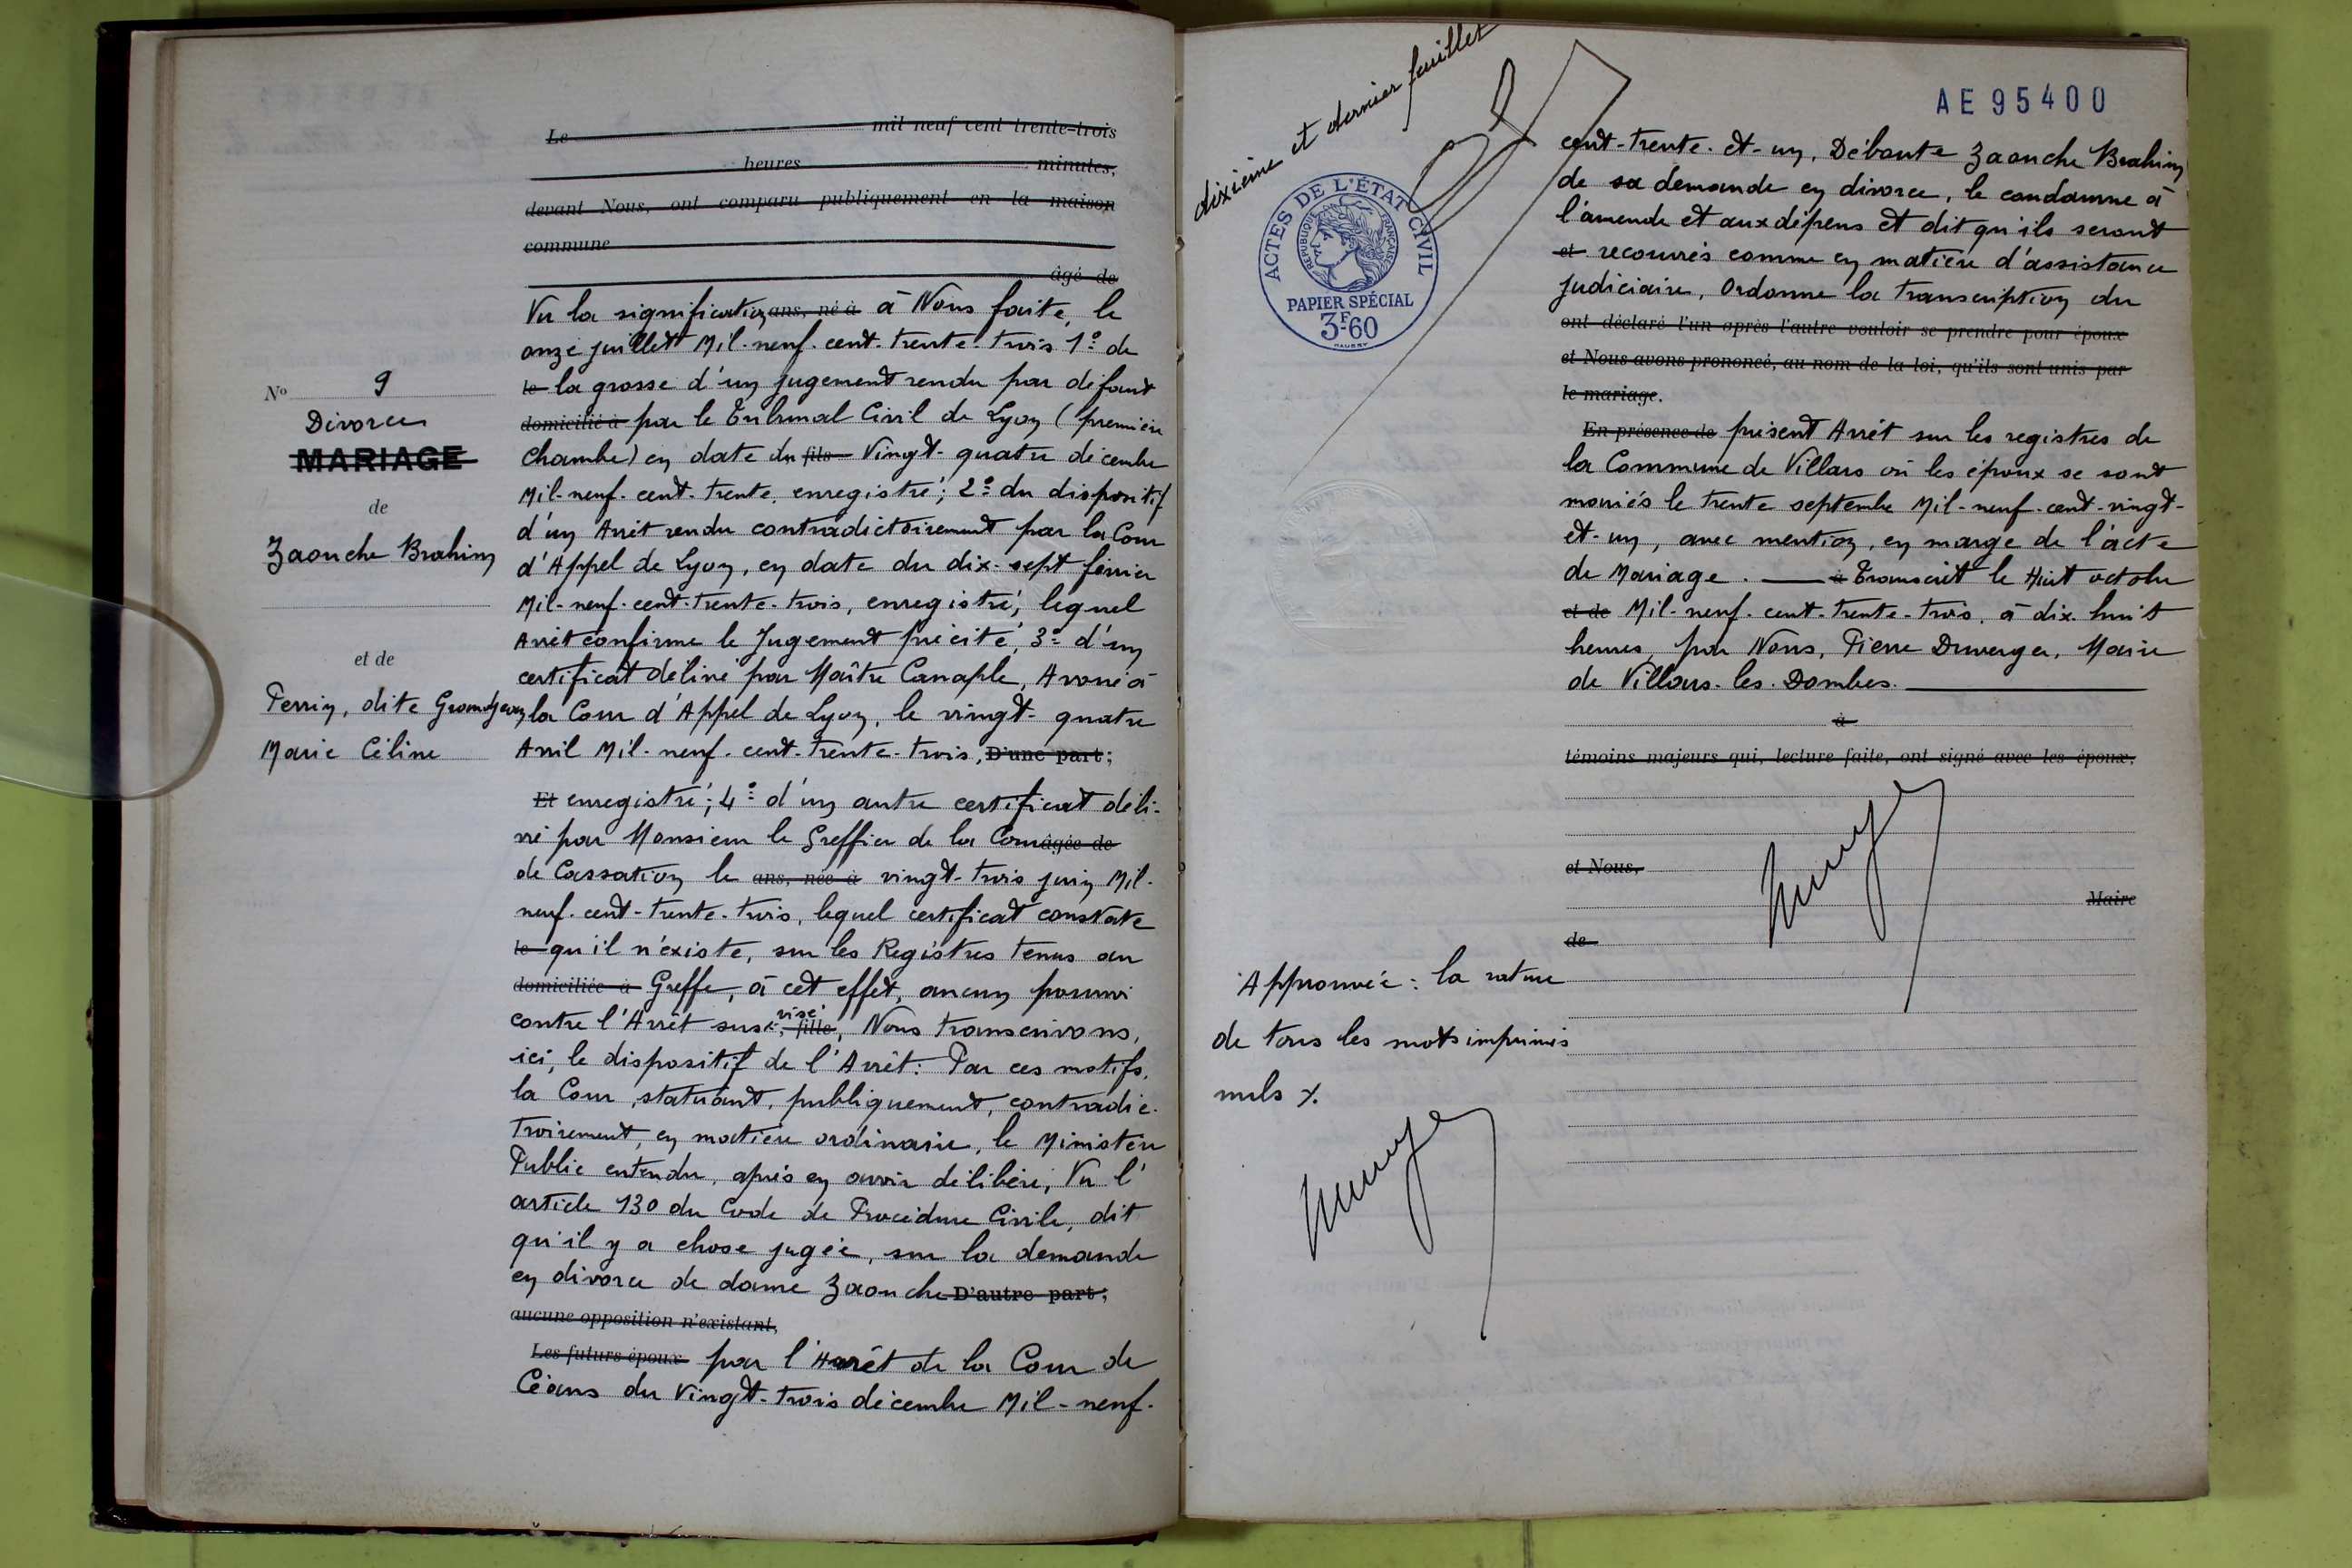 Le mil neuf cent trente-trois
heures minutes,
devant Nous, ont comparu publiquement en la maison
commune
âgé de
Vu la signification ans, né à à Nous faite, le
onze juillet Mil-neuf-cent-trente-trois 1° de
le la grosse d'un jugement rendu par défaut
domicilié à par le Tribunal Civil de Lyon (première
chambre) en date du fils Vingt-quatre décembre
Mil-neuf-cent-trente, enregistré; 2° du dispositif
d'un Arrêt rendu contradictoirement par la Cour
d'Appel de Lyon, en date du dix-sept février
Mil-neuf-cent-trente-trois, enregistré, lequel
Arrêt confirme le Jugement précité, 3° d'un
certificat délivré par Maître Canaple, Avoué à
la Cour d'Appel de Lyon, le vingt-quatre
Avril Mil-neuf-cent-trente-trois, D'une part;
Et enregistré; 4° d'un autre certificat déli-
vré par Monsieur le Greffier de la Cour âgée de
de Cassation le ans, née à vingt-trois juin Mil-
neuf-cent-trente-trois, lequel certificat constate
le qu'il n'existe, sur les Registres tenus au
domiciliée à Greffe, à cet effet, aucun pourvoi
contre l'Arrêt susvisé, fille, Nous transcrivons,
ici, le dispositif de l'Arrêt: Par ces motifs,
la Cour, statuant, publiquement, contradic-
toirement, en matière ordinaire, le Ministère
Public entendu, après en avoir délibéré, Vu l'
article 130 du Code de Procédure Civile, dit
qu'il y a chose jugée, sur la demande
en divorce de dame Zaouche D'autre part;
aucune opposition n'existant,
Les futurs époux par l'Arrêt de la Cour de
Céans du Vingt-trois décembre Mil-neuf-
No 9
Divorce
MARIAGE
de
Zaouche Brahim
et de
Perrin, dite Grandjean
Marie Céline
dixième et dernier feuillet
ACTES DE L'ÉTAT CIVIL
RÉPUBLIQUE FRANÇAISE
PAPIER SPÉCIAL
3F60
AE 95400
cent-trente-et-un, Déboute Zaouche Brahim
de sa demande en divorce, le condamne à
l'amende et aux dépens et dit qu'ils seront
et recouvrés comme en matière d'assistance
judiciaire, Ordonne la transcription du
ont déclaré l'un après l'autre vouloir se prendre pour époux
et Nous avons prononcé, au nom de la loi, qu'ils sont unis par
le mariage.
En présence de présent Arrêt sur les registres de
la Commune de Villars où les époux se sont
mariés le trente septembre Mil-neuf-cent-vingt-
et-un, avec mention, en marge de l'acte
de Mariage. à Transcrit le Huit octobre
et de Mil-neuf-cent-trente-trois, à dix-huit
heures, par Nous, Pierre Duverger, Maire
de Villars-les-Dombes.
à
témoins majeurs qui, lecture faite, ont signé avec les époux,
et Nous,
Maire
de
Approuvée: la rature
de tous les mots imprimés
nuls